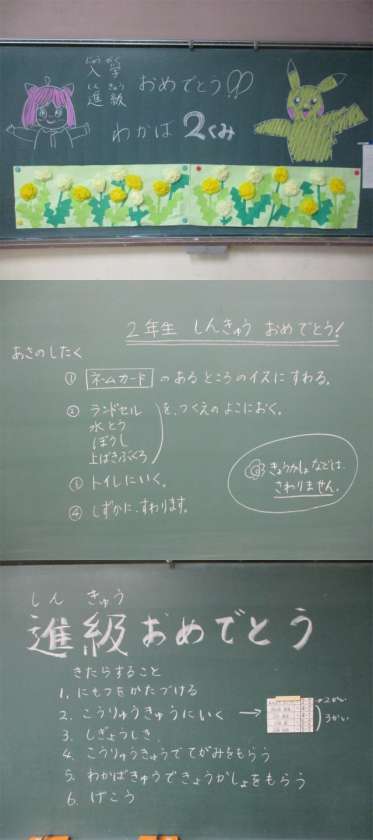 にゅう がく
入 学
しん きゅう
進 級
おめでとう!!
わかば 2くみ
2年生 しんきゅう おめでとう!
あさのしたく
① ネームカード のあるところのイスにすわる。
② ランドセル
水とう
ぼうし
上ばきぶくろ
を、つくえのよこにおく。
③ トイレにいく。
④ しずかに、すわります。
きょうかしょなどは、
さわりません。
しん きゅう
進級おめでとう
きたらすること
1. にもつをかたづける
2. こうりゅうきゅうにいく →
→2かい
3かい
3. しぎょうしき
4. こうりゅうきゅうでてがみをもらう
5. わかばきゅうできょうかしょをもらう
6. げこう